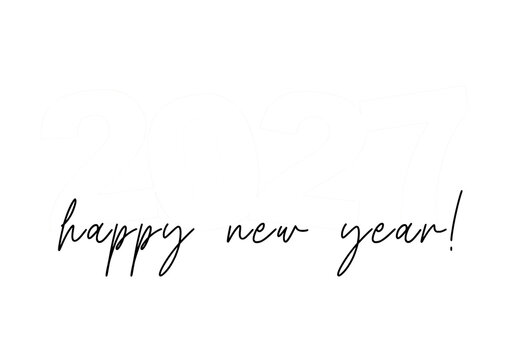 2027
happy new year!